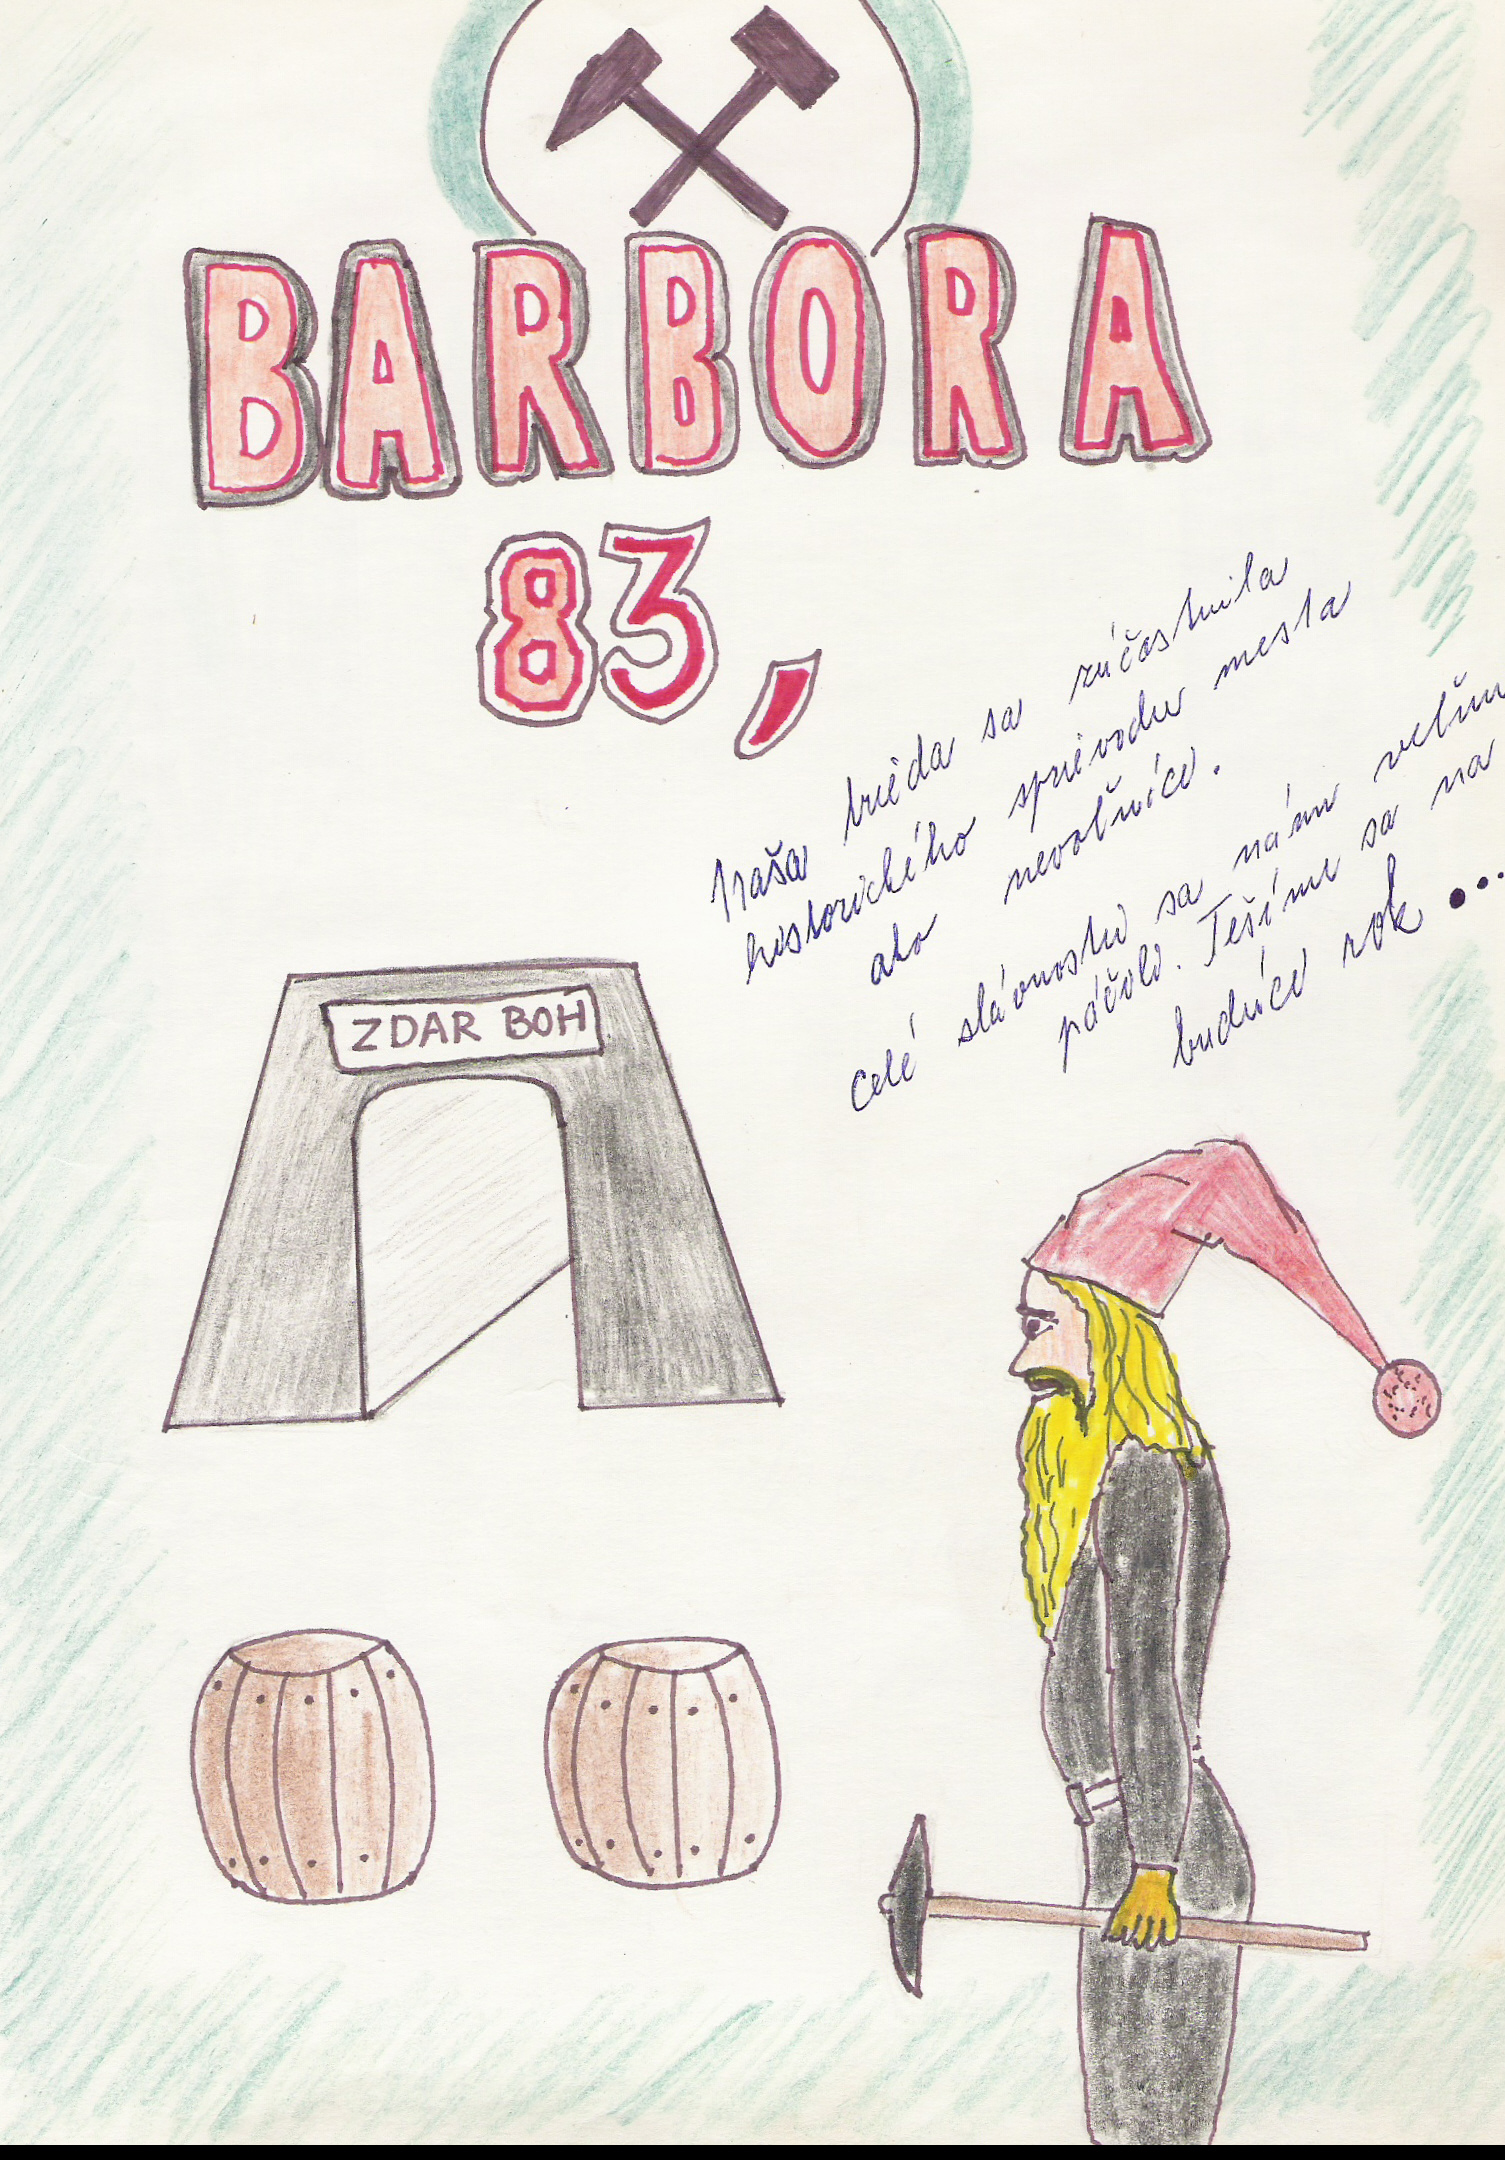 BARBORA
83,
Naša trieda sa zúčastnila
historického sprievodu mesta
ako nevoľníci.
Celé slávnosti sa nám veľmi
páčili. Tešíme sa na
budúci rok ...
ZDAR BOH